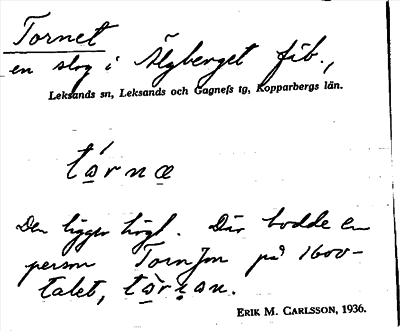 Tornet
en slog i Älgberget fäb.,
Leksands sn, Leksands och Gagnefs tg, Kopparbergs län.
tárnæ
Den ligger högt. Där bodde en
person TornJon på 1600-
talet, tàrṇan.
ERIK M. CARLSSON, 1936.